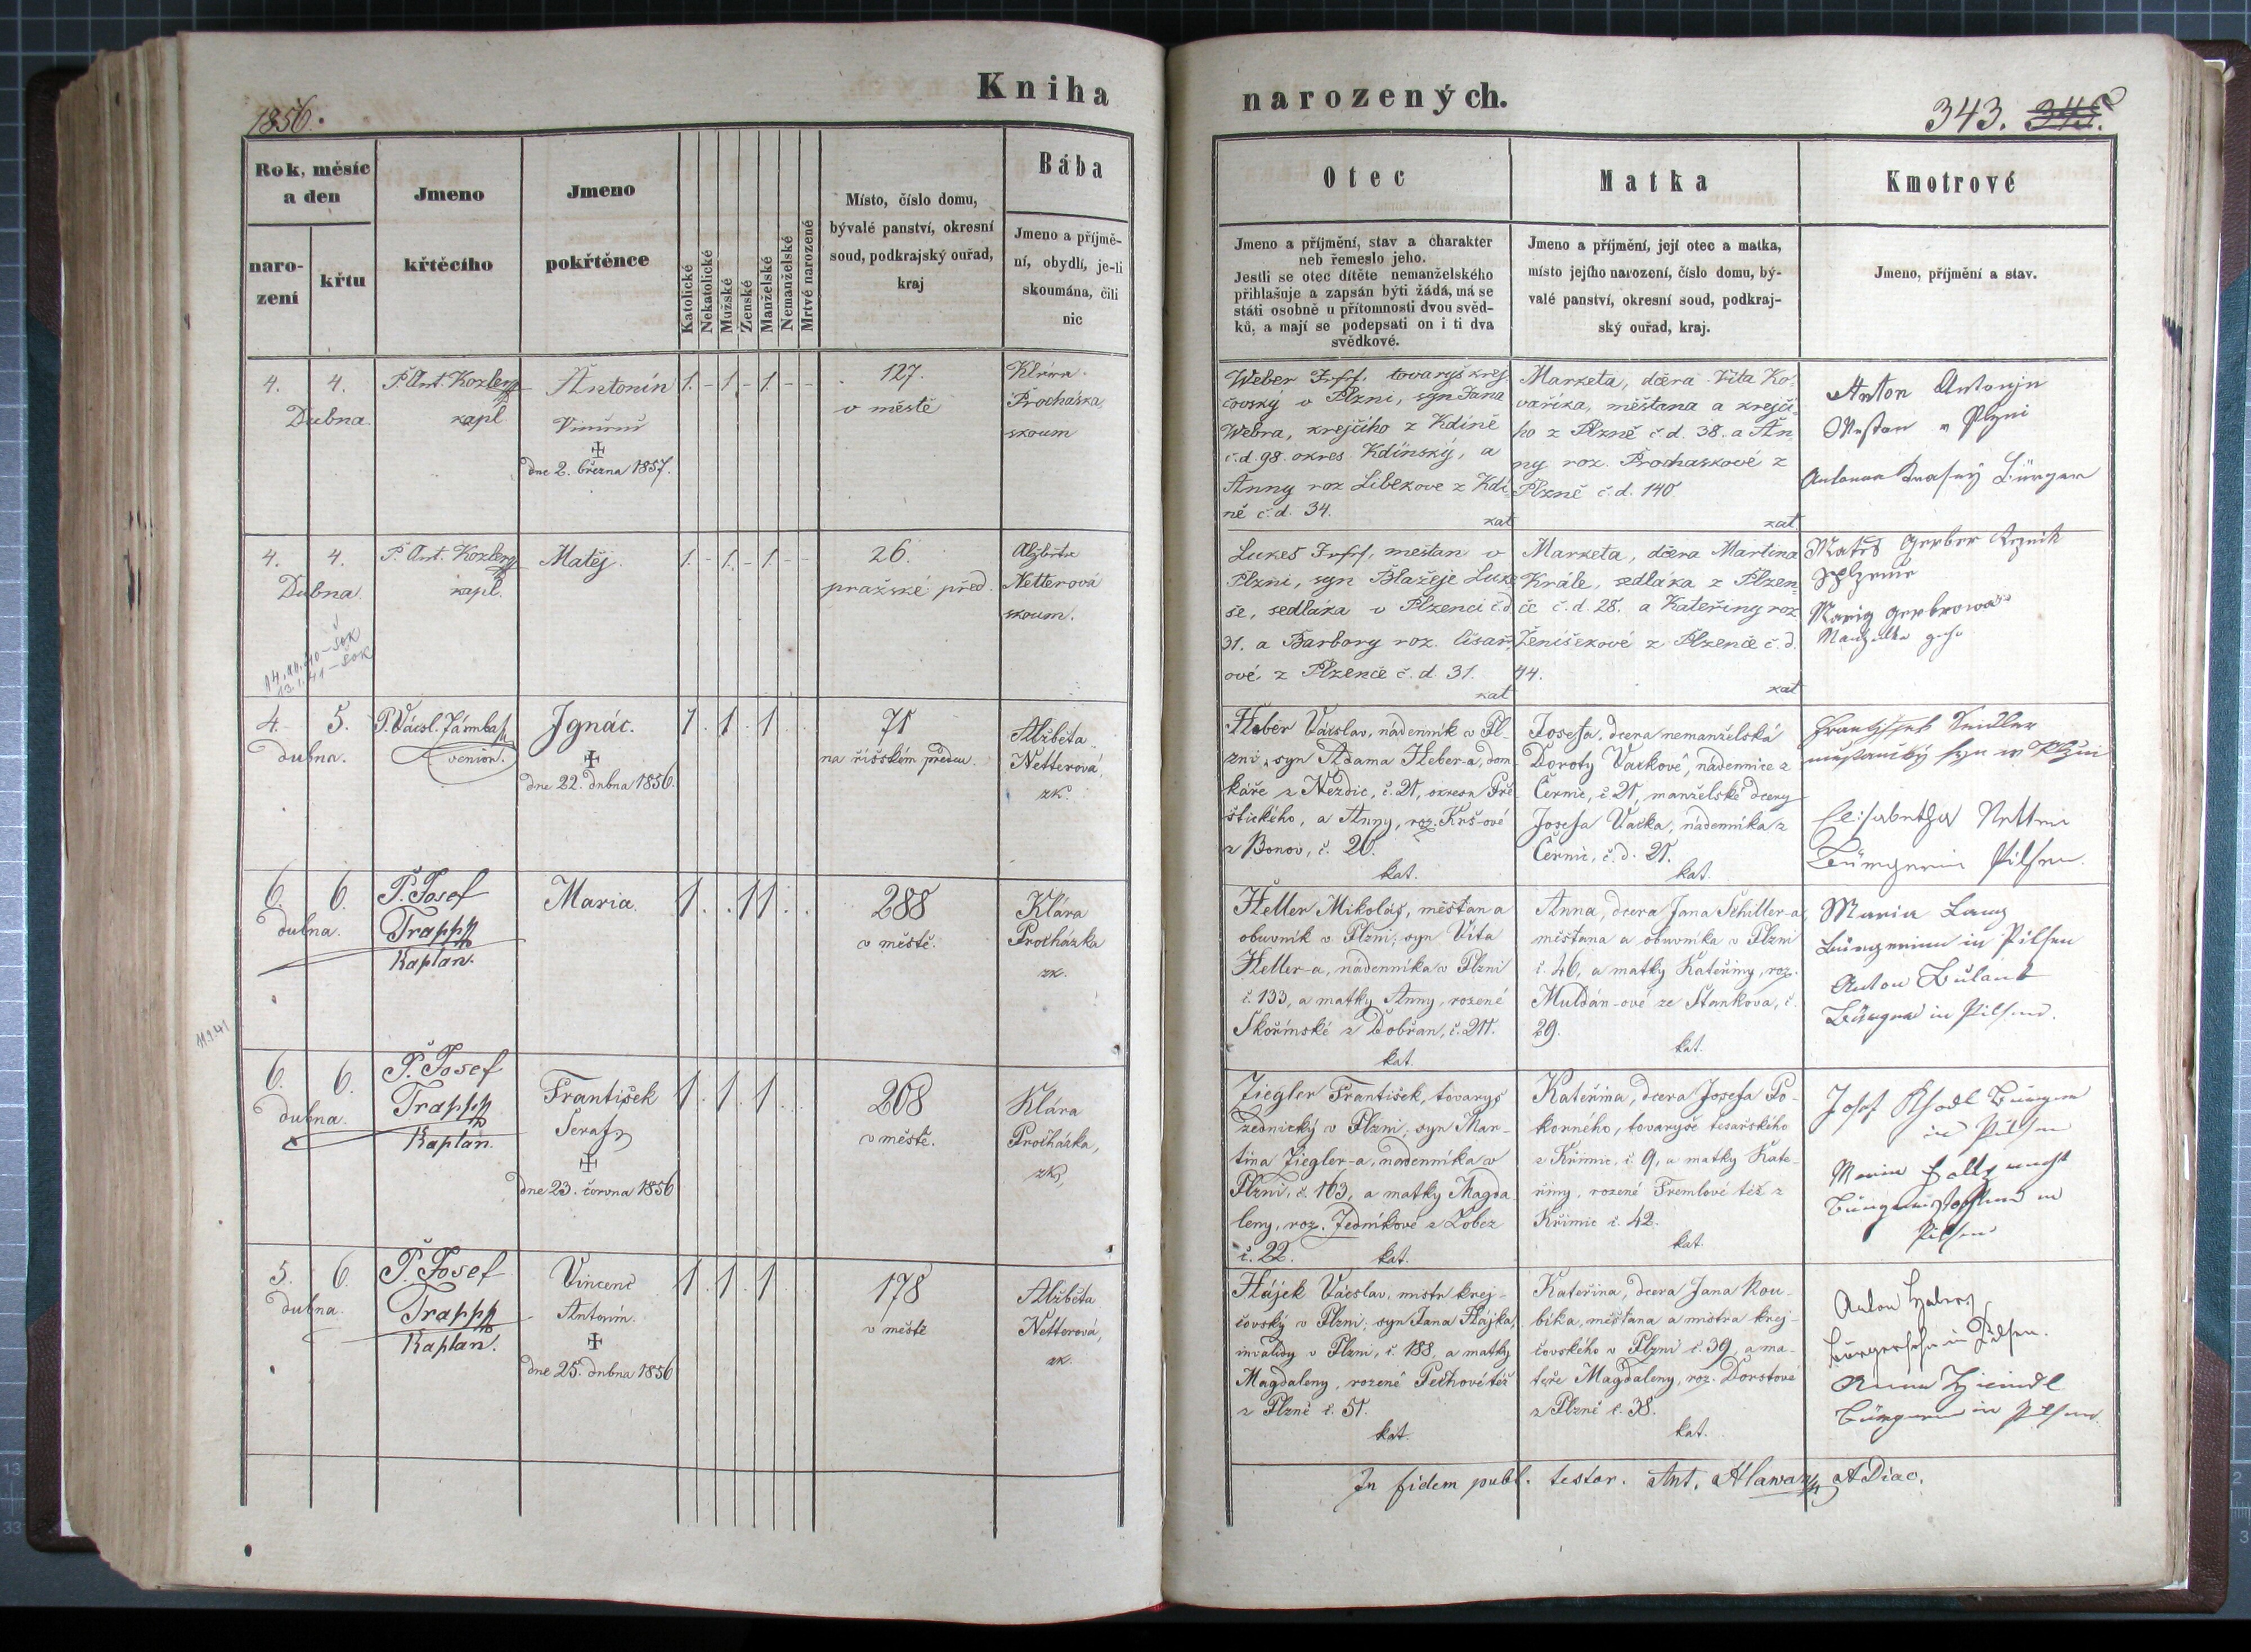 Kniha
narozených.
1856.
343. 345.
Rok, měsíc
a den
naro-
zení
křtu
Jmeno
křtěcího
Jmeno
pokřtěnce
Katolické
Nekatolické
Mužské
Ženské
Manželské
Nemanželské
Mrtvé narozené
Místo, číslo domu,
bývalé panství, okresní
soud, podkrajský ouřad,
kraj
Bába
Jmeno a příjmě-
ní, obydlí, je-li
skoumána, čili
nic
Otec
Jmeno a příjmění, stav a charakter
neb řemeslo jeho.
Jestli se otec dítěte nemanželského
přihlašuje a zapsán býti žádá, má se
státi osobně u přítomnosti dvou svěd-
ků, a mají se podepsati on i ti dva
svědkové.
Matka
Jmeno a příjmění, její otec a matka,
místo jejího narození, číslo domu, bý-
valé panství, okresní soud, podkraj-
ský ouřad, kraj.
Kmotrové
Jmeno, příjmění a stav.
4. 4.
Dubna.
P. Ant. Kozler
kapl
Antonín
✝
dne 2. března 1857.
1. - 1. - 1. - -
127.
v městě
Klára
Prochaska,
skoum
Weber tovaryš krej
čovský v Plzni, syn Jana
Webra, krejčího z Kdině
č.d. 98. okres Kdinský, a
Anny roz Libekove z Kdi
ně č.d. 34.
kat
Marketa, dcera Víta Ko-
vaříka, měštana a krejčí-
ho z Plzně č.d. 38. a An
ny roz. Prochaskové z
Plzně č.d. 140
kat.
Anton Antonyn
4. 4.
Dubna.
P. Ant. Kozler
kapl.
Matěj.
1. - 1. - 1. - -
26.
pražské před.
Alžběta
Netterová
skoum.
14.10.40-SOK
13.1.41-SOK
Lukeš měštan v
Plzni, syn Blažeje Luke
še, sedláka v Plzenci č.d
31. a Barbory roz. Císař-
ové z Plzenče č. d. 31.
kat
Marketa, dcera Martina
Krále, sedláka z Plzen-
če č.d. 28. a Kateřiny roz
Ženíšekové z Plzenče č.d.
44.
kat
Matěj Gerber Reznik
Maria Gerbrowa
4. 5.
dubna.
P. Vácsl. Jármba
senior.
Ignác.
✝
dne 22. dubna 1856.
1. 1. 1.
71
na říšském předm.
Alžběta
Netterová,
zk.
Heber Václav, nádenník v Pl-
zni, syn Adama Heber-a, dom-
káře z Nezdic, č. 21, okresu Pře-
štického, a Anny, roz. Krš-ové
z Bonov, č. 26.
kat.
Josefa, dcera nemanželská
Doroty Vackové, nádennice z
Černic, č 21, manželské dcery
Josefa Vacka, nádenníka z
Černic, č.d. 21.
kat.
Elisabetha Netter
Bürgerin Pilsen.
6. 6.
dubna.
P. Josef
Trapp
Kaplan.
Maria.
1. . . 1 1 . .
288
v městě.
Klára
Procházka
zk.
Heller Mikoláš, měšťan a
obuvník v Plzni; syn Víta
Heller-a, nádenníka v Plzni
č. 133, a matky Anny, rozené
Skořínské z Dobřan, č. 211.
kat.
Anna, dcera Jana Schiller-a
měšťana a obuvníka v Plzni
č. 46, a matky Kateřiny, roz.
Muldán-ové ze Stankova, č.
29.
kat.
Maria Lang
Bürgerinn in Pilsen
Anton Bulant
Bürger in Pilsen.
11.9.41
6. 6.
dubna.
P. Josef
Trapp
Kaplan.
František
Seraf
✝
dne 23. června 1856
1. 1. 1.
208
v městě.
Klára
Procházka,
zk,
Ziegler František, tovaryš
zednický v Plzni; syn Mar-
tina Ziegler-a, nádenníka v
Plzni, č. 163, a matky Magda-
leny, roz. Jedníkové z Lobez
č. 22. kat.
Kateřina, dcera Josefa Po-
korného, tovaryše tesařského
z Křimic, č. 9, a matky Kate-
řiny, rozené Fremlové též z
Křimic č. 42.
kat.
Josef Bürger
in Pilsen
Maria
Pilsen
5. 6.
dubna.
P. Josef
Trapp
Kaplan.
Vincenc
Antonín.
✝
dne 25. dubna 1856
1. 1. 1.
178
v městě
Alžběta
Netterová,
zk.
Hájek Václav, mistr krej-
čovský v Plzni; syn Jana Hájka,
invalidy v Plzni, č. 188, a matky
Magdaleny, rozené Pechové též
z Plzně č. 51.
kat.
Kateřina, dcera Jana Kou-
bíka, měšťana a mistra krej-
čovského v Plzni č. 39, a ma-
teře Magdaleny, roz. Dorstové
z Plzně č. 38.
kat.
Anton
Bürgersohn in Pilsen.
Anna
Bürgerin in Pilsen.
In fidem publ. testor. Ant. Hlawa ADiac.